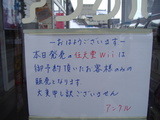 －おはようございます－
本日発売の任天堂Wiiは
御予約頂いたお客様のみの
販売となります
大変申し訳ございません